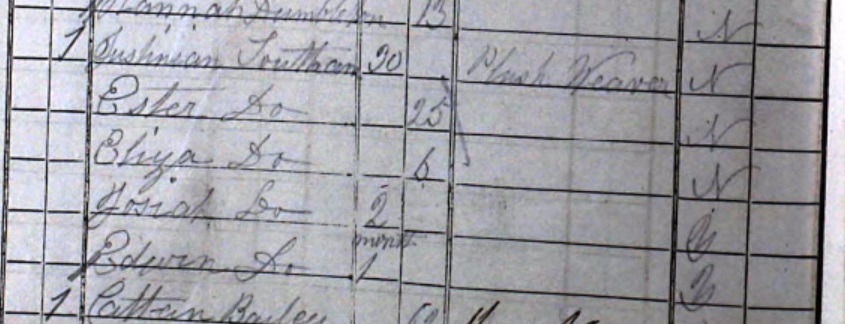 Hannah Dumbleton 13 N
1 Justinian Southam 30 Plush Weaver N
Ester Do 25 N
Eliza Do 6 N
Josiah Do 2 Y
Edwin Do 1 month Y
1 Bailey